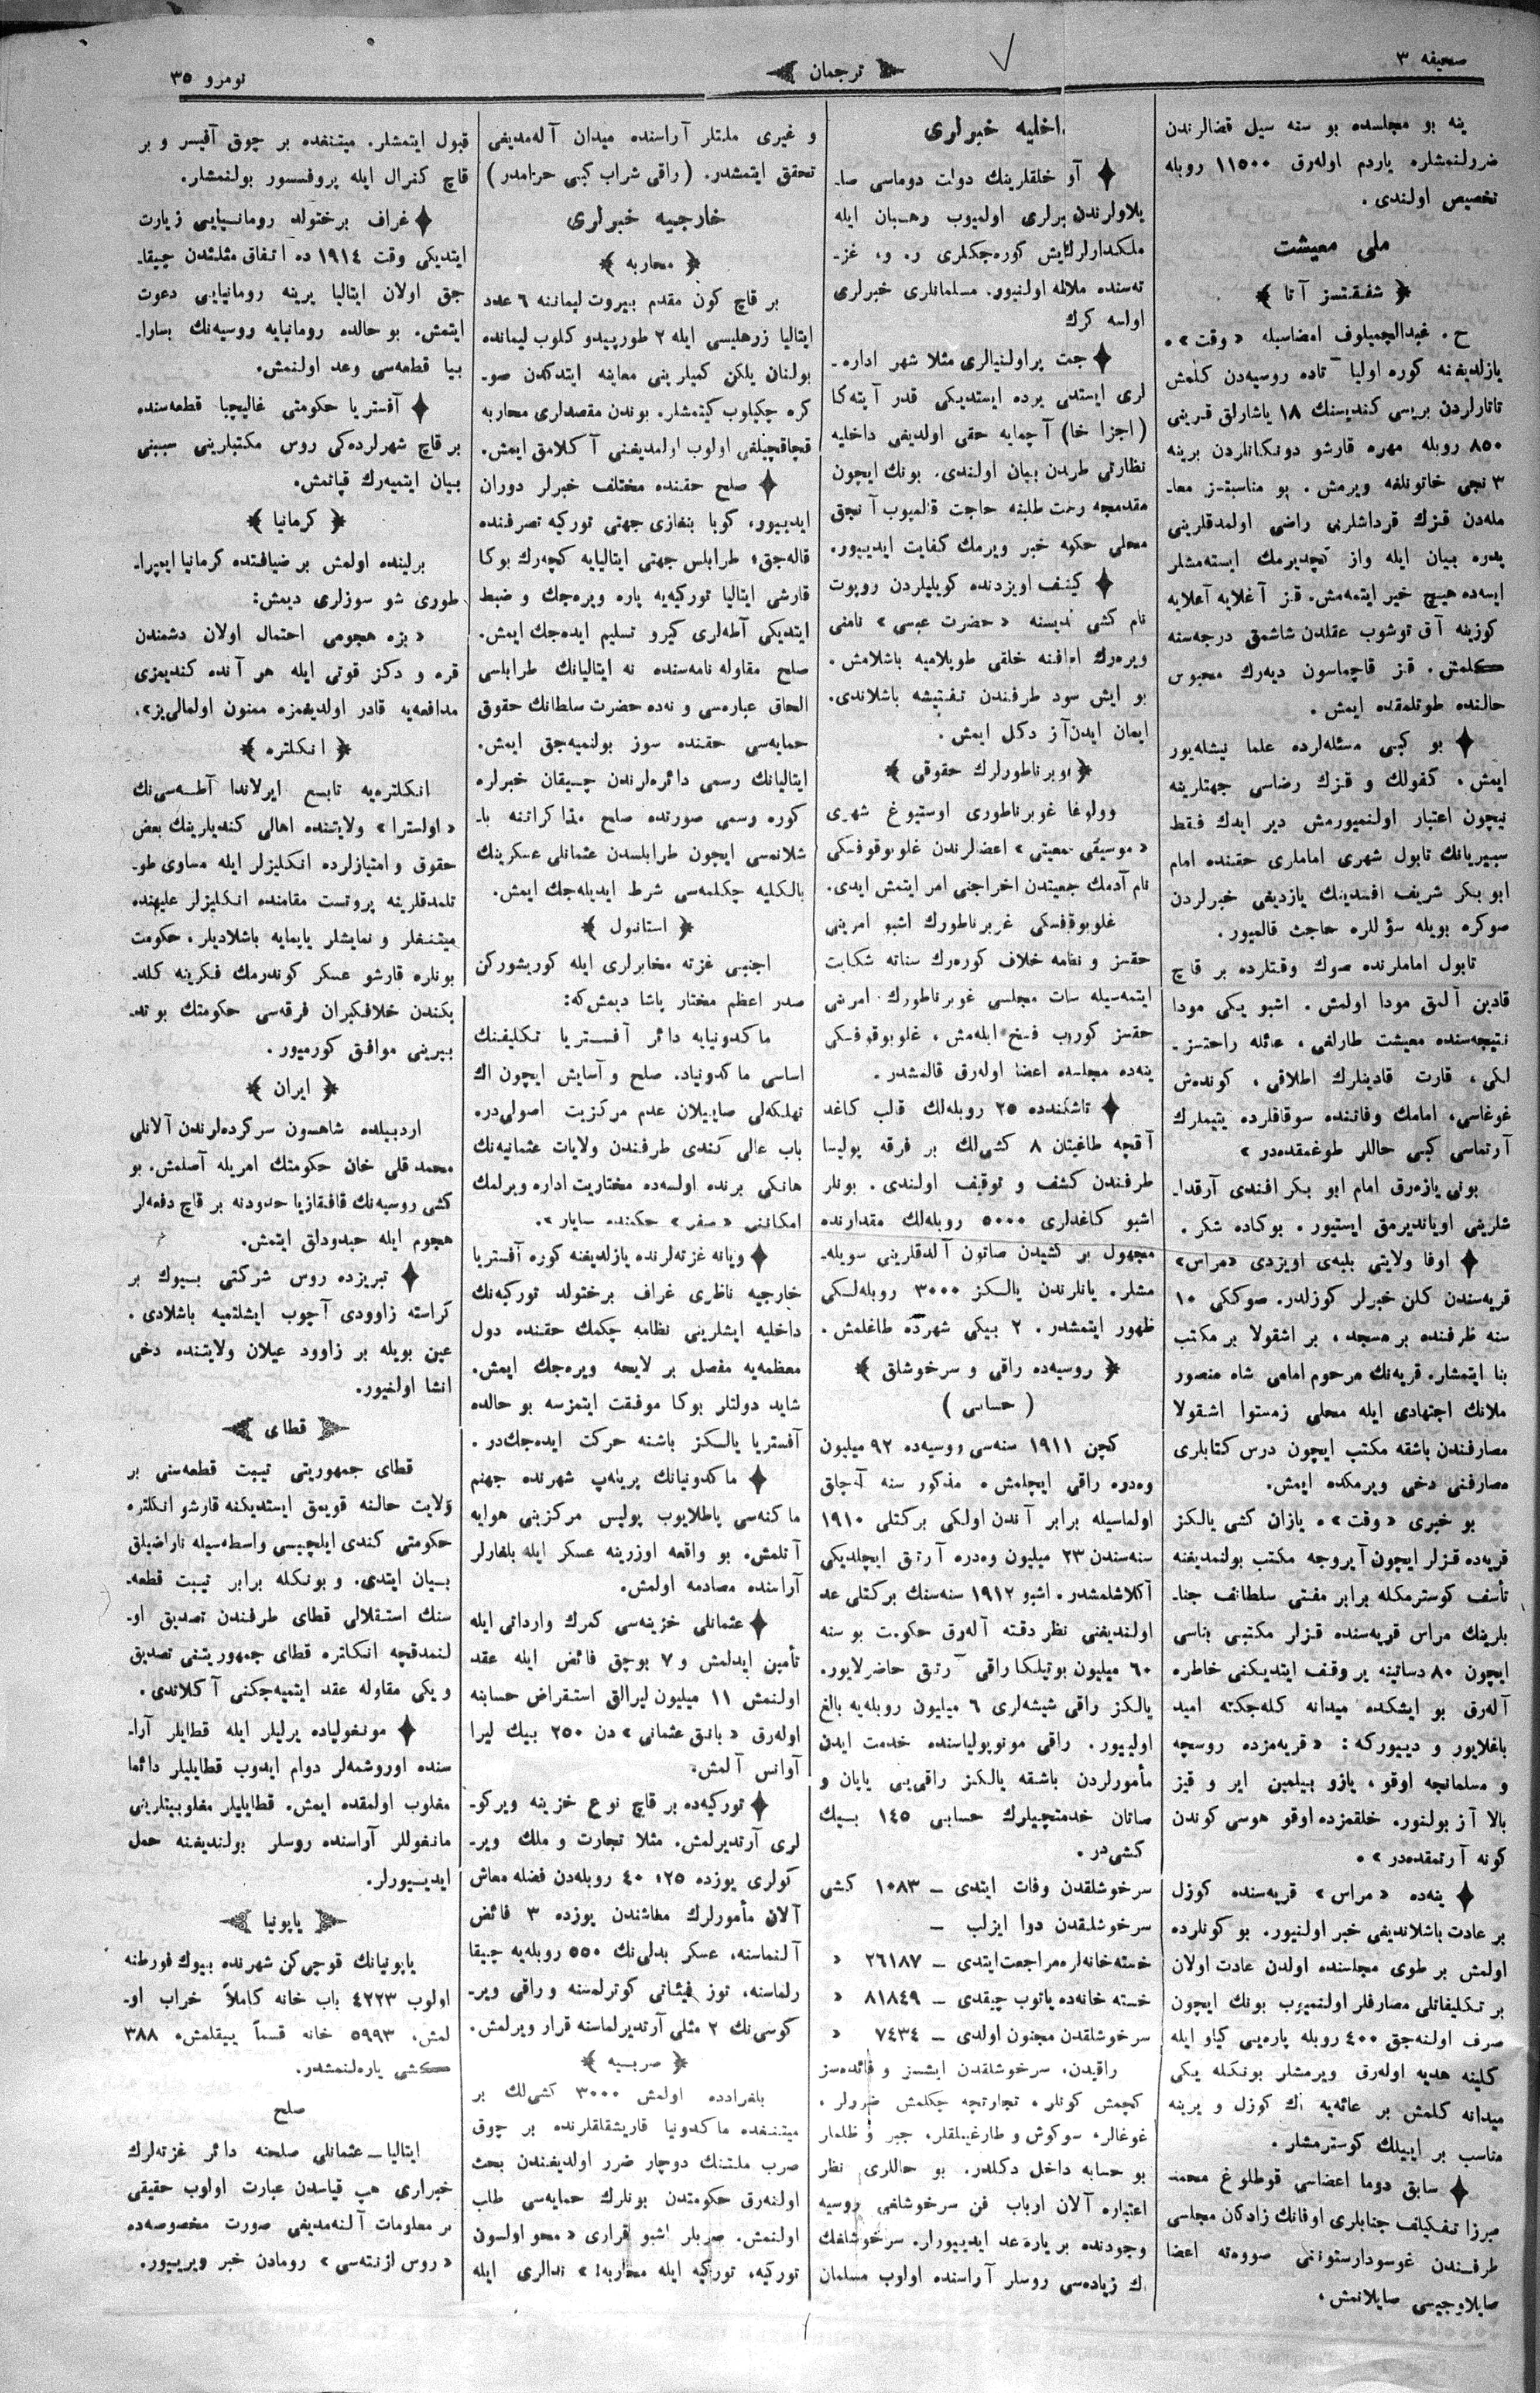 صحیفه ٣
ترجمان
نومرو ٣٥
ینه بو مجلسده بو سنه سیل قضالرندن
ضررلنمشلره یاردم اوله‌رق ١١٥٠٠ روبله
تخصیص اولندی.
ملی معیشت
﴿ شفقتسز آتا ﴾
ح. عبدالجمیلوف امضاسیله «وقت»ه
یازلدیغنه کوره اولیا آتاده روسیه‌دن کلمش
تاتارلردن بریسی کندیسنك ١٨ یاشارلق قزینی
٨٥٠ روبله مهره قارشو دونکانلردن برینه
٣ نجی خاتونلغه ویرمش. بو مناسبتسز معا-
مله‌دن قزك قرداشلری راضی اولمدقلرینی
پدره بیان ایله واز کچدیرمك ایسته‌مشلر
ایسه‌ده هیچ خیر ایتمه‌مش. قز آغلایه آغلایه
کوزینه آق توشوب عقلدن شاشمق درجه‌سنه
کلمش. قز قاچماسون دیه‌رك محبوس
حالنده طوتلمقده ایمش.
بو کبی مسئله‌لرده علما نیشله‌یور
ایمش. کفولك و قزك رضاسی جهتلرینه
نیچون اعتبار اولنمیورمش دیر ایدك فقط
سیبریانك تابول شهری اماملری حقنده امام
ابو بکر شریف افندینك یازدیغی خبرلردن
صوکره بویله سؤاللره حاجت قالمیور.
تابول اماملرنده صوك وقتلرده بر قاچ
قادین آلمق مودا اولمش. اشبو یکی مودا
نتیجه‌سنده معیشت طارلغی، عائله راحتسز-
لکی، قارت قادینلرك اطلاقی، کونده‌ش
غوغاسی، امامك وفاتنده سوقاقلرده یتیملرك
آرتماسی کبی حاللر طوغمقده‌در»
بونی یازه‌رق امام ابو بکر افندی آرقدا-
شلرینی اویاندیرمق ایستیور. بوکاده شکر.
اوفا ولایتی بلبه‌ی اویزدی «مراس»
قریه‌سندن کلن خبرلر کوزلدر. صوککی ١٠
سنه ظرفنده بر مسجد، بر اشقولا بر مکتب
بنا ایتمشلر. قریه‌نك مرحوم امامی شاه منصور
ملانك اجتهادی ایله محلی زمستوا اشقولا
مصارفندن باشقه مکتب ایچون درس کتابلری
مصارفنی دخی ویرمکده ایمش.
بو خبری «وقت»ه یازان کشی یالکز
قریه‌ده قزلر ایچون آیروجه مکتب بولنمدیغنه
تأسف کوسترمکله برابر مفتی سلطانف جنا-
بلرینك مراس قریه‌سنده قزلر مکتبی بناسی
ایچون ٨٠ دساتینه یر وقف ایتدیکنی خاطره
آله‌رق بو ایشکده میدانه کله‌جکنه امید
باغلایور و دییورکه: «قریه‌مزده روسچه
و مسلمانچه اوقو، یازو بیلمین ایر و قیز
بالا آز بولنور. خلقمزده اوقو هوسی کوندن
کونه آرتمقده‌در».
ینه‌ده «مراس» قریه‌سنده کوزل
بر عادت باشلاندیغی خبر اولنیور. بو کونلرده
اولمش بر طوی مجلسنده اولدن عادت اولان
بر تکلیفاتلی مصارفلر اولنمیوب بونك ایچون
صرف اولنه‌جق ٤٠٠ روبله پاره‌یی کیاو ایله
کلینه هدیه اوله‌رق ویرمشلر بونکله یکی
میدانه کلمش بر عائله‌یه اك کوزل و یرینه
مناسب بر ایییلك کوسترمشلر.
سابق دوما اعضاسی قوطلوغ محمد
میرزا تفکیلف جنابلری اوفانك زادکان مجلسی
طرفندن غوسودارستوننی صووه‌ته اعضا
صایلاوجیسی صایلانمش.
داخلیه خبرلری
آو خلقلرینك دولت دوماسی صا-
یلاولرندن برلری اولمیوب رهبان ایله
او، غز-
ته‌سنده ملاله اولنیور. مسلمانلری خبرلری
اولسه کرك
لری ایستدیکی یرده ایستدیکی قدر آپته‌کا
(اجزا خا) آچمایه حقی اولدیغی داخلیه
نظارتی طرفدن بیان اولندی. بونك ایچون
مقدمجه رخصت طلبنه حاجت قالمیوب آنجق
محلی حکومه خبر ویرمك کفایت ایدییور.
کییف اویزدنده کویلیلردن روبوت
نام کشی کندیسنه «حضرت عیسی» نامنی
ویره‌رك اطرافنه خلقی طوپلامیه باشلامش.
بو ایش سود طرفندن تفتیشه باشلاندی.
ایمان ایدن آز دکل ایمش.
﴿ غوبرناطورلرك حقوقی ﴾
وولوغدا غوبرناطوری اوستیوغ شهری
«موسیقی جمعیتی» اعضالرندن غلوبوقوفسکی
نام آدمك جمعیتدن اخراجنی امر ایتمش ایدی.
غلوبوقوفسکی غوبرناطورك اشبو امرینی
حقسز و نظامه خلاف کوره‌رك سناته شکایت
ایتمه‌سیله سنات مجلسی غوبرناطورك امرینی
حقسز کوروب فسخ ایله‌مش، غلوبوقوفسکی
ینه‌ده مجلسده اعضا اوله‌رق قالمشدر.
تاشکندده ٢٥ روبله‌لك قالب کاغد
آقچه طاغیتان ٨ کشی‌لك بر فرقه پولیسا
طرفندن کشف و توقیف اولندی. بونلر
اشبو کاغدلری ٥٠٠٠ روبله‌لك مقدارنده
مجهول بر کشیدن صاتون آلدقلرینی سویله-
مشلر. یانلرندن یالکز ٣٠٠٠ روبله‌لکی
ظهور ایتمشدر. ٢ بیکی شهرده طاغلمش.
﴿ روسیه‌ده راقی و سرخوشلق ﴾
( حسابی )
کچن ١٩١١ سنه‌سی روسیه‌ده ٩٢ میلیون
وه‌دره راقی ایچلمش. مذکور سنه آچلق
اولماسیله برابر آندن اولکی برکتلی ١٩١٠
سنه‌سندن ٢٣ میلیون وه‌دره آرتق ایچلدیکی
آکلاشلمشدر. اشبو ١٩١٢ سنه‌سنك برکتلی عد
اولندیغنی نظر دقته آله‌رق حکومت بو سنه
٦٠ میلیون بوتیلکا راقی آرتق حاضرلایور.
یالکز راقی شیشه‌لری ٦ میلیون روبله‌یه بالغ
اولییور. راقی مونوپولیاسنده خدمت ایدن
مأمورلردن باشقه یالکز راقی‌یی یاپان و
صاتان خدمتچیلرك حسابی ١٤٥ بیك
کشی‌در.
سرخوشلقدن وفات ایتدی — ١٠٨٣ کشی
سرخوشلقدن دوا ایزلب —
خسته‌خانه‌لره مراجعت ایتدی — ٢٦١٨٧ «
خسته خانه‌ده یاتوب چیقدی — ٨١٨٤٩ «
سرخوشلقدن مجنون اولدی — ٧٤٣٤ «
راقیدن، سرخوشلقدن ایشسز و فائده‌سز
کچمش کونلر، تجارتچه چکلمش ضررلر،
غوغالر، سوکوش و طارغینلقلر، جبر و ظلملر
بو حسابه داخل دکلدر. بو حاللری نظر
اعتباره آلان ارباب فن سرخوشلغی روسیه
وجودنده بر یاره عد ایدییورلر. سرخوشلغك
اك زیاده‌سی روسلر آراسنده اولوب مسلمان
و غیری ملتلر آراسنده میدان آله‌مدیغی
تحقق ایتمشدر. (راقی شراب کبی حرامدر)
خارجیه خبرلری
﴿ محاربه ﴾
بر قاچ کون مقدم بیروت لیماننه ٦ عدد
ایتالیا زرهلیسی ایله ٢ طورپیدو کلوب لیمانده
بولنان یلکن کمیلرینی معاینه ایتدکدن صو-
کره چکیلوب کیتمشلر. بوندن مقصدلری محاربه
قچاقچیلغی اولوب اولمدیغنی آکلامق ایمش.
صلح حقنده مختلف خبرلر دوران
ایدییور، کویا بنغازی جهتی تورکیه تصرفنده
قاله‌جق؛ طرابلس جهتی ایتالیایه کچه‌رك بوکا
قارشی ایتالیا تورکیه‌یه پاره ویره‌جك و ضبط
ایتدیکی آطه‌لری کیرو تسلیم ایده‌جك ایمش.
صلح مقاوله نامه‌سنده نه ایتالیانك طرابلسی
الحاق عباره‌سی و نه‌ده حضرت سلطانك حقوق
حمایه‌سی حقنده سوز بولنمیه‌جق ایمش.
ایتالیانك رسمی دائره‌لرندن چیقان خبرلره
کوره رسمی صورتده صلح مذاکراتنه با-
شلانمسی ایچون طرابلسدن عثمانلی عسکرینك
بالکلیه چکلمه‌سی شرط ایدیله‌جك ایمش.
﴿ استانبول ﴾
اجنبی غزته مخابرلری ایله کوریشورکن
صدر اعظم مختار پاشا دیمش‌که:
ماکدونیایه دائر آفستریا تکلیفنك
اساسی ماکدونیاد. صلح و آسایش ایچون اك
تهلکه‌لی صاییلان عدم مرکزیت اصولی‌در.
باب عالی کندی طرفندن ولایات عثمانیه‌نك
هانکی برنده اولسه‌ده مختاریت اداره ویرلمك
امکاننی «صفر» حکمنده صایار».
ویانه غزته‌لرنده یازلدیغنه کوره آفستریا
خارجیه ناظری غراف برختولد تورکیه‌نك
داخلیه ایشلرینی نظامه چکمك حقنده دول
معظمه‌یه مفصل بر لایحه ویره‌جك ایمش.
شاید دولتلر بوکا موفقت ایتمزسه بو حالده
آفستریا یالکز باشنه حرکت ایده‌جك‌در.
ماکدونیانك پرینه‌پ شهرنده جهنم
ماکنه‌سی پاطلایوب پولیس مرکزینی هوایه
آتلمش. بو واقعه اوزرینه عسکر ایله بلغارلر
آراسنده مصادمه اولمش.
عثمانلی خزینه‌سی کمرك وارداتی ایله
تأمین ایدلمش و ٧ بوچق فائض ایله عقد
اولنمش ١١ میلیون لیرالق استقراض حسابنه
اوله‌رق «بانق عثمانی» دن ٢٥٠ بیك لیرا
آوانس آلمش.
تورکیه‌ده بر قاچ نوع خزینه ویرکو-
لری آرتدیرلمش. مثلا تجارت و ملك ویر-
کولری یوزده ٢٥؛ ٤٠ روبله‌دن فضله معاش
آلان مأمورلرك معاشندن یوزده ٣ فائض
آلنماسنه، عسکر بدلی‌نك ٥٥٠ روبله‌یه چیقا
رلماسنه، توز فیئاتی کوترلمسنه و راقی ویر-
کوسی‌نك ٢ مثلی آرتدیرلماسنه قرار ویرلمش.
﴿ صربیه ﴾
بلغرادده اولمش ٣٠٠٠ کشی‌لك بر
میتنغده ماکدونیا قاریشقلقلرنده بر چوق
صرب ملتنك دوچار ضرر اولدیغندن بحث
اولنه‌رق حکومتدن بونلرك حمایه‌سی طلب
اولنمش. صربلر اشبو قراری «محو اولسون
تورکیه، تورکیه ایله محاربه!» ندالری ایله
قبول ایتمشلر. میتنغده بر چوق آفیسر و بر
قاچ کنرال ایله پروفسسور بولنمشلر.
غراف برختولد رومانیایی زیارت
ایتدیکی وقت ١٩١٤ ده اتفاق مثلثدن چیقا-
جق اولان ایتالیا یرینه رومانیایی دعوت
ایتمش. بو حالده رومانیایه روسیه‌نك بسارا-
بیا قطعه‌سی وعد اولنمش.
آفستریا حکومتی غالیچیا قطعه‌سنده
بر قاچ شهرلرده‌کی روس مکتبلرینی سببنی
بیان ایتمیه‌رك قپاتمش.
﴿ کرمانیا ﴾
برلینده اولمش بر ضیافتده کرمانیا ایمپرا-
طوری شو سوزلری دیمش:
«بزه هجومی احتمال اولان دشمندن
قره و دکز قوتی ایله هر آنده کندیمزی
مدافعه‌یه قادر اولدیغمزه ممنون اولمالی‌یز».
﴿ انکلتره ﴾
انکلتره‌یه تابع ایرلاندا آطه‌سی‌نك
«اولسترا» ولایتنده اهالی کندیلرینك بعض
حقوق و امتیازلرده انکلیزلر ایله مساوی طو-
تلمدقلرینه پروتست مقامنده انکلیزلر علیهنده
میتنغلر و نمایشلر یاپمایه باشلادیلر. حکومت
بونلره قارشو عسکر کوندرمك فکرینه کلد-
یکندن خلافکیران فرقه‌سی حکومتك بو تد-
بیرینی موافق کورمیور.
﴿ ایران ﴾
اردبیلده شاهسون سرکرده‌لرندن آلانلی
محمد قلی خان حکومتك امریله آصلمش. بو
کشی روسیه‌نك قافقازیا حدودنه بر قاچ دفعه‌لر
هجوم ایله حیدودلق ایتمش.
تبریزده روس شرکتی بیوك بر
کراسته زاوودی آچوب ایشلتمیه باشلادی.
عین بویله بر زاوود غیلان ولایتنده دخی
انشا اولنیور.
قطای
قطای جمهوریتی تیبت قطعه‌سنی بر
ولایت حالنه قویمق ایستدیکنه قارشو انکلتره
حکومتی کندی ایلچیسی واسطه‌سیله ناراضیلق
بیان ایتدی. و بونکله برابر تیبت قطعه-
سنك استقلالی قطای طرفندن تصدیق او-
لنمدقچه انکلتره قطای جمهوریتنی تصدیق
و یکی مقاوله عقد ایتمیه‌جکنی آکلاندی.
مونغولیاده یرلیلر ایله قطایلر آرا-
سنده اوروشمه‌لر دوام ایدوب قطایلیلر دائما
مغلوب اولمقده ایمش. قطایلیلر مغلوبیتلرینی
مانغوللر آراسنده روسلر بولندیغنه حمل
ایدییورلر.
یاپونیا
یاپونیانك قوچی‌کن شهرنده بیوك فورطنه
اولوب ٤٢٢٣ باب خانه کاملاً خراب او-
لمش، ٥٩٩٣ خانه قسماً ییقلمش، ٣٨٨
کشی یاره‌لنمشدر.
صلح
ایتالیا — عثمانلی صلحنه دائر غزته‌لرك
خبرلری هپ قیاسدن عبارت اولوب حقیقی
بر معلومات آلنه‌مدیغی صورت مخصوصه‌ده
«روس ازنته‌سی» رومادن خبر ویرییور.